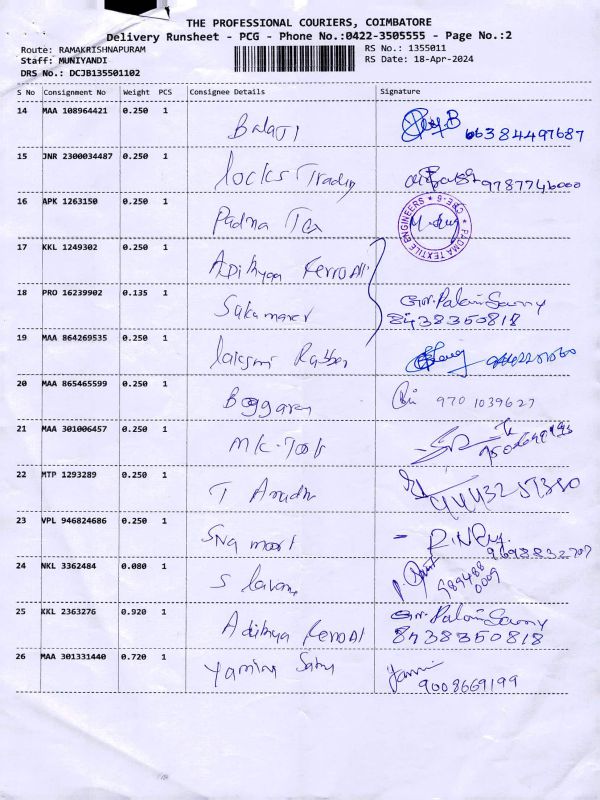 THE PROFESSIONAL COURIERS, COIMBATORE
Delivery Runsheet - PCG - Phone No.:0422-3505555 - Page No.:2
Route: RAMAKRISHNAPURAM RS No.: 1355011
Staff: MUNIYANDI RS Date: 18-Apr-2024
DRS No.: DCJB135501102
S No Consignment No Weight PCS Consignee Details Signature
14 MAA 108964421 0.250 1 Balaji
15 JNR 2300034487 0.250 1 locks Trading 9787746000
16 APK 1263150 0.250 1 Padma Tex
PADMA TEXTILE ENGINEERS ★ CBE-6 ★
17 KKL 1249302 0.250 1 Adithyaa Ferro
18 PRO 16239902 0.135 1 Gr. Palani Samy
8438350818
19 MAA 864269535 0.250 1 laksmi Rubber
20 MAA 865465599 0.250 1 970 1039627
21 MAA 301006457 0.250 1 MK-Tools
22 MTP 1293289 0.250 1 T
23 VPL 946824686 0.250 1 SNQ mart
24 NKL 3362484 0.080 1 S
25 KKL 2363276 0.920 1 Adithya Ferro Gr. Palani Samy
8438350818
26 MAA 301331440 0.720 1
9008669199